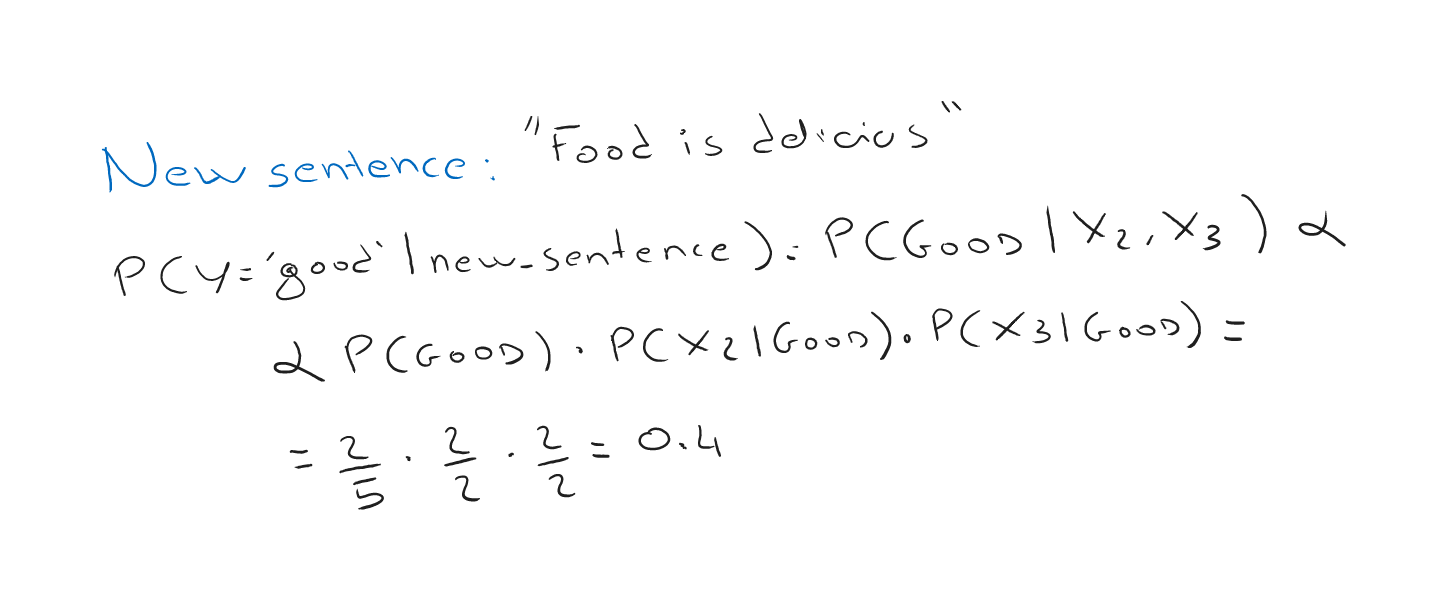 New sentence: "Food is delicius"
P(Y='good' | new_sentence) = P(GOOD | X2, X3) α
α P(GOOD) · P(X2 | GOOD) · P(X3 | GOOD) =
= 2/5 · 2/2 · 2/2 = 0.4